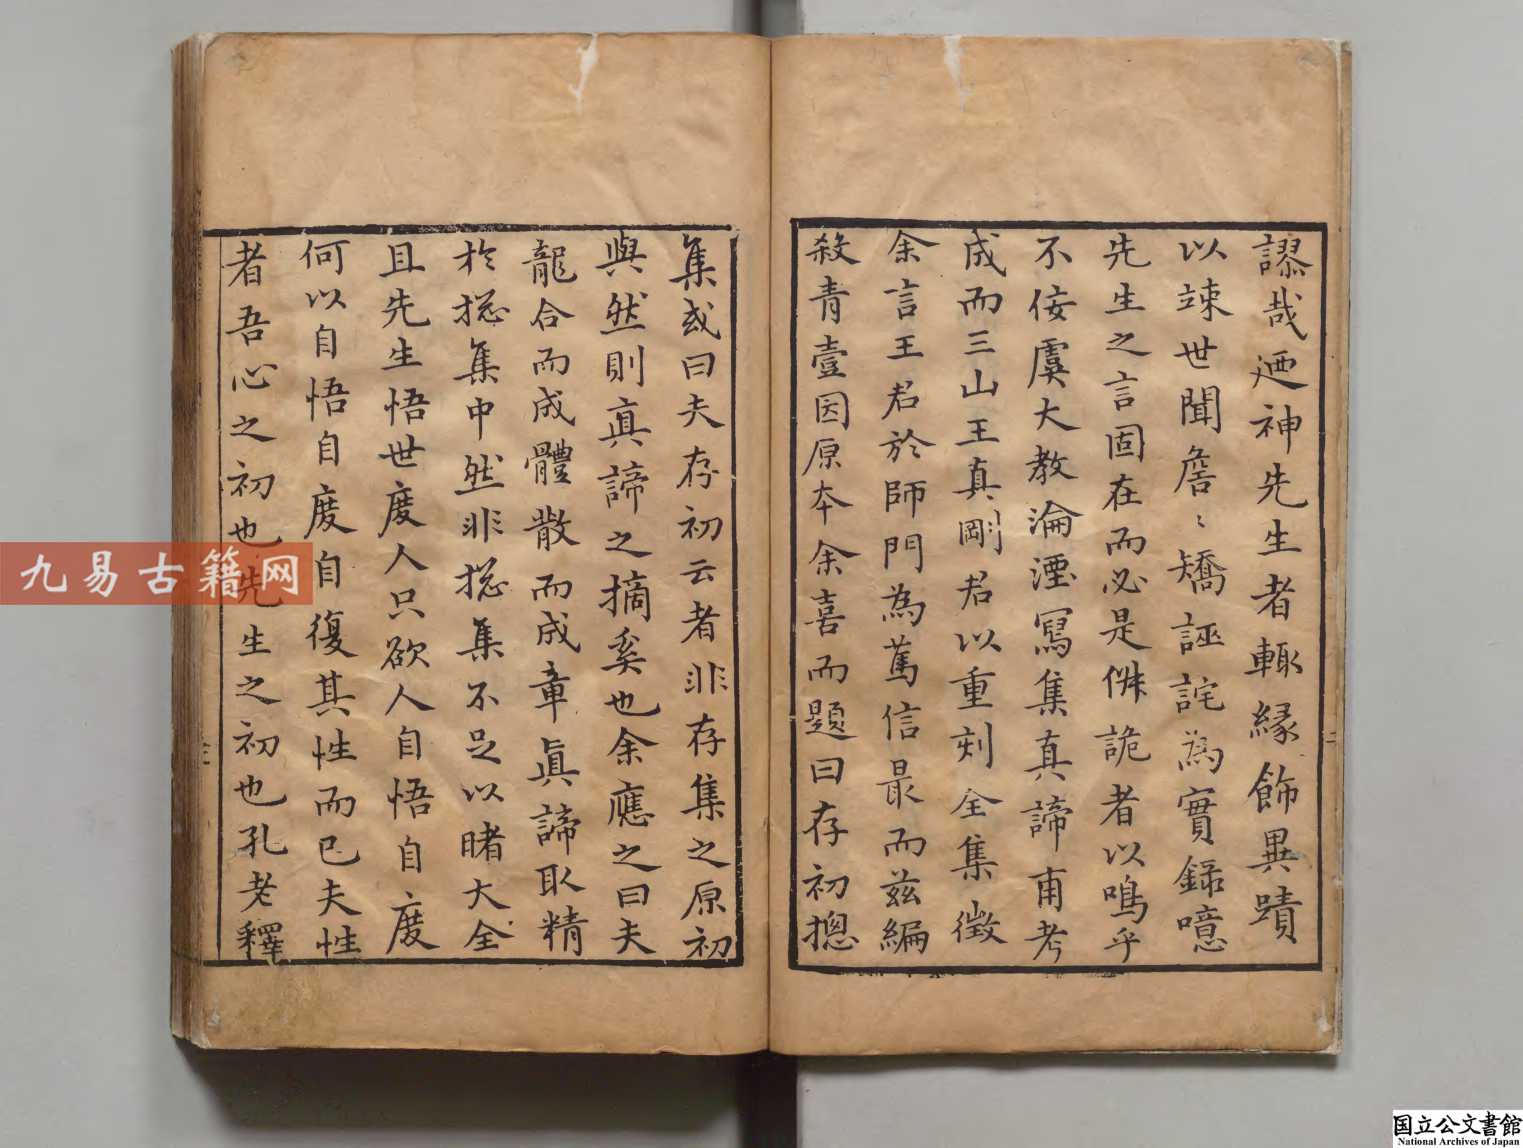 謬哉迺神先生者輙緣飾異蹟
以竦世聞詹〻矯誣詫為實錄噫
先生之言固在而必是俶詭者以鳴乎
不佞虞大教淪湮寫集真諦甫考
成而三山王真剛君以重刻全集徵
余言王君於師門為篤信最而茲編
殺青壹因原本余喜而題曰存初摠
集或曰夫存初云者非存集之原初
與然則真諦之摘奚也余應之曰夫
龍合而成體散而成章真諦取精
於摠集中然非摠集不足以睹大全
且先生悟世度人只欲人自悟自度
何以自悟自度自復其性而已夫性
者吾心之初也先生之初也孔老釋
九易古籍网
国立公文書館
National Archives of Japan